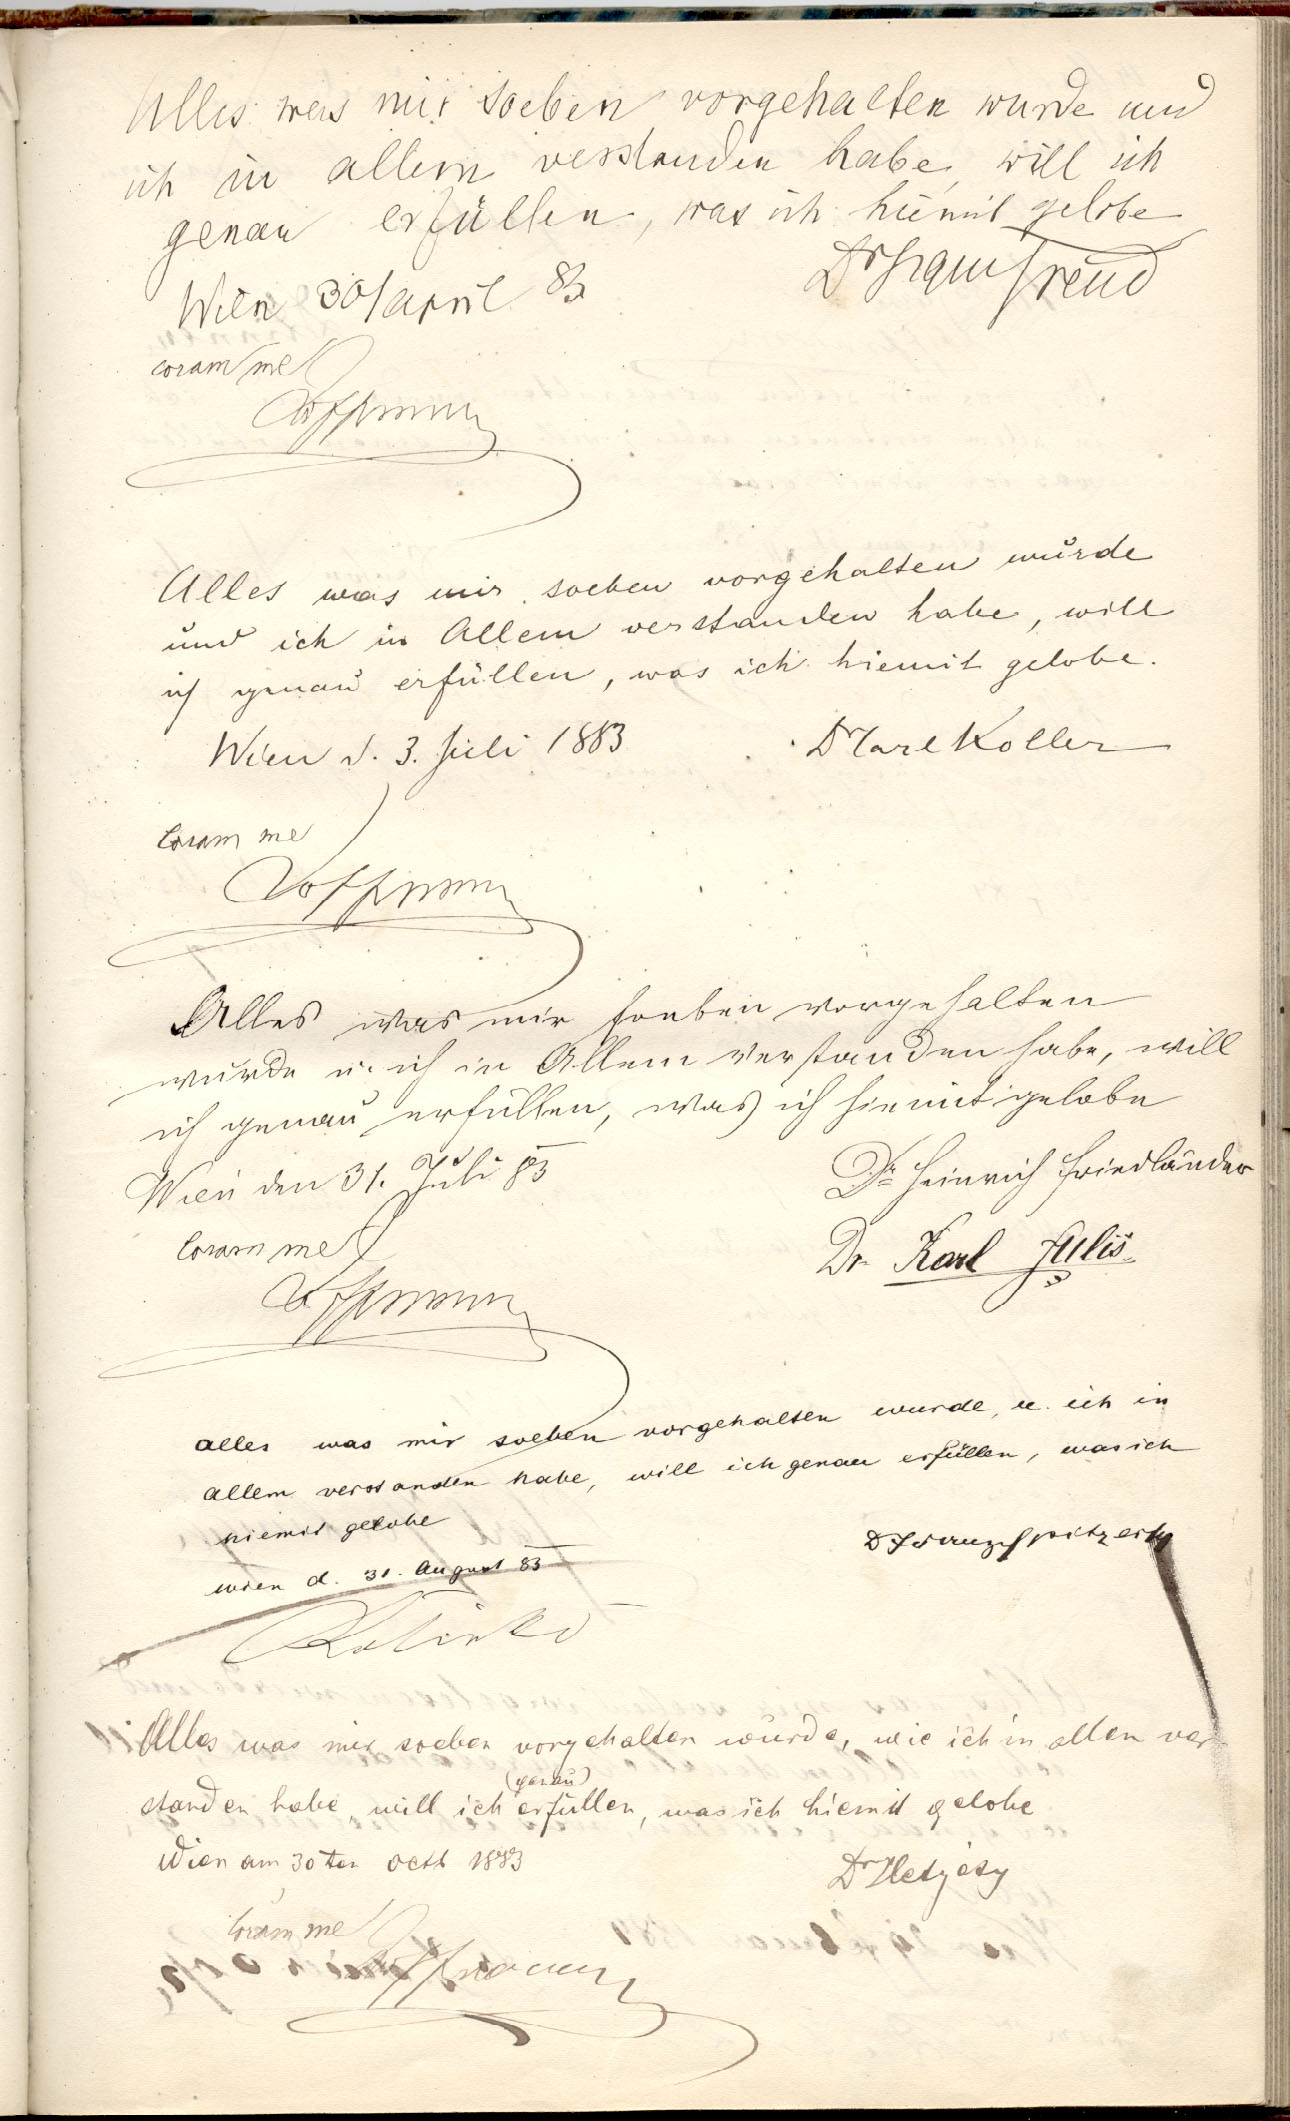 Alles was mir soeben vorgehalten wurde und
ich in allem verstanden habe, will ich
genau erfüllen, was ich hiemit gelobe
Dr Sigm Freud
Wien 30/April 83
coram me
Alles was mir soeben vorgehalten wurde
und ich in Allem verstanden habe, will
ich genau erfüllen, was ich hiemit gelobe.
Wien d. 3. Juli 1883
Dr Carl Koller
Coram me
Alles was mir soeben vorgehalten
wurde u. ich in Allem verstanden habe, will
ich genau erfüllen, was ich hiemit gelobe
Wien den 31. Juli 83
Dr Heinrich Friedländer
Coram me
Dr Karl
alles was mir soeben vorgehalten wurde, u. ich in
allem verstanden habe, will ich genau erfüllen, was ich
hiemit gelobe
Dr Franz
wien d. 31. August 83
Alles was mir soeben vorgehalten wurde, wie ich in allen ver-
(genau)
standen habe, will ich erfüllen, was ich hiemit gelobe
Wien am 30ten Octb 1883
Dr
Coram me